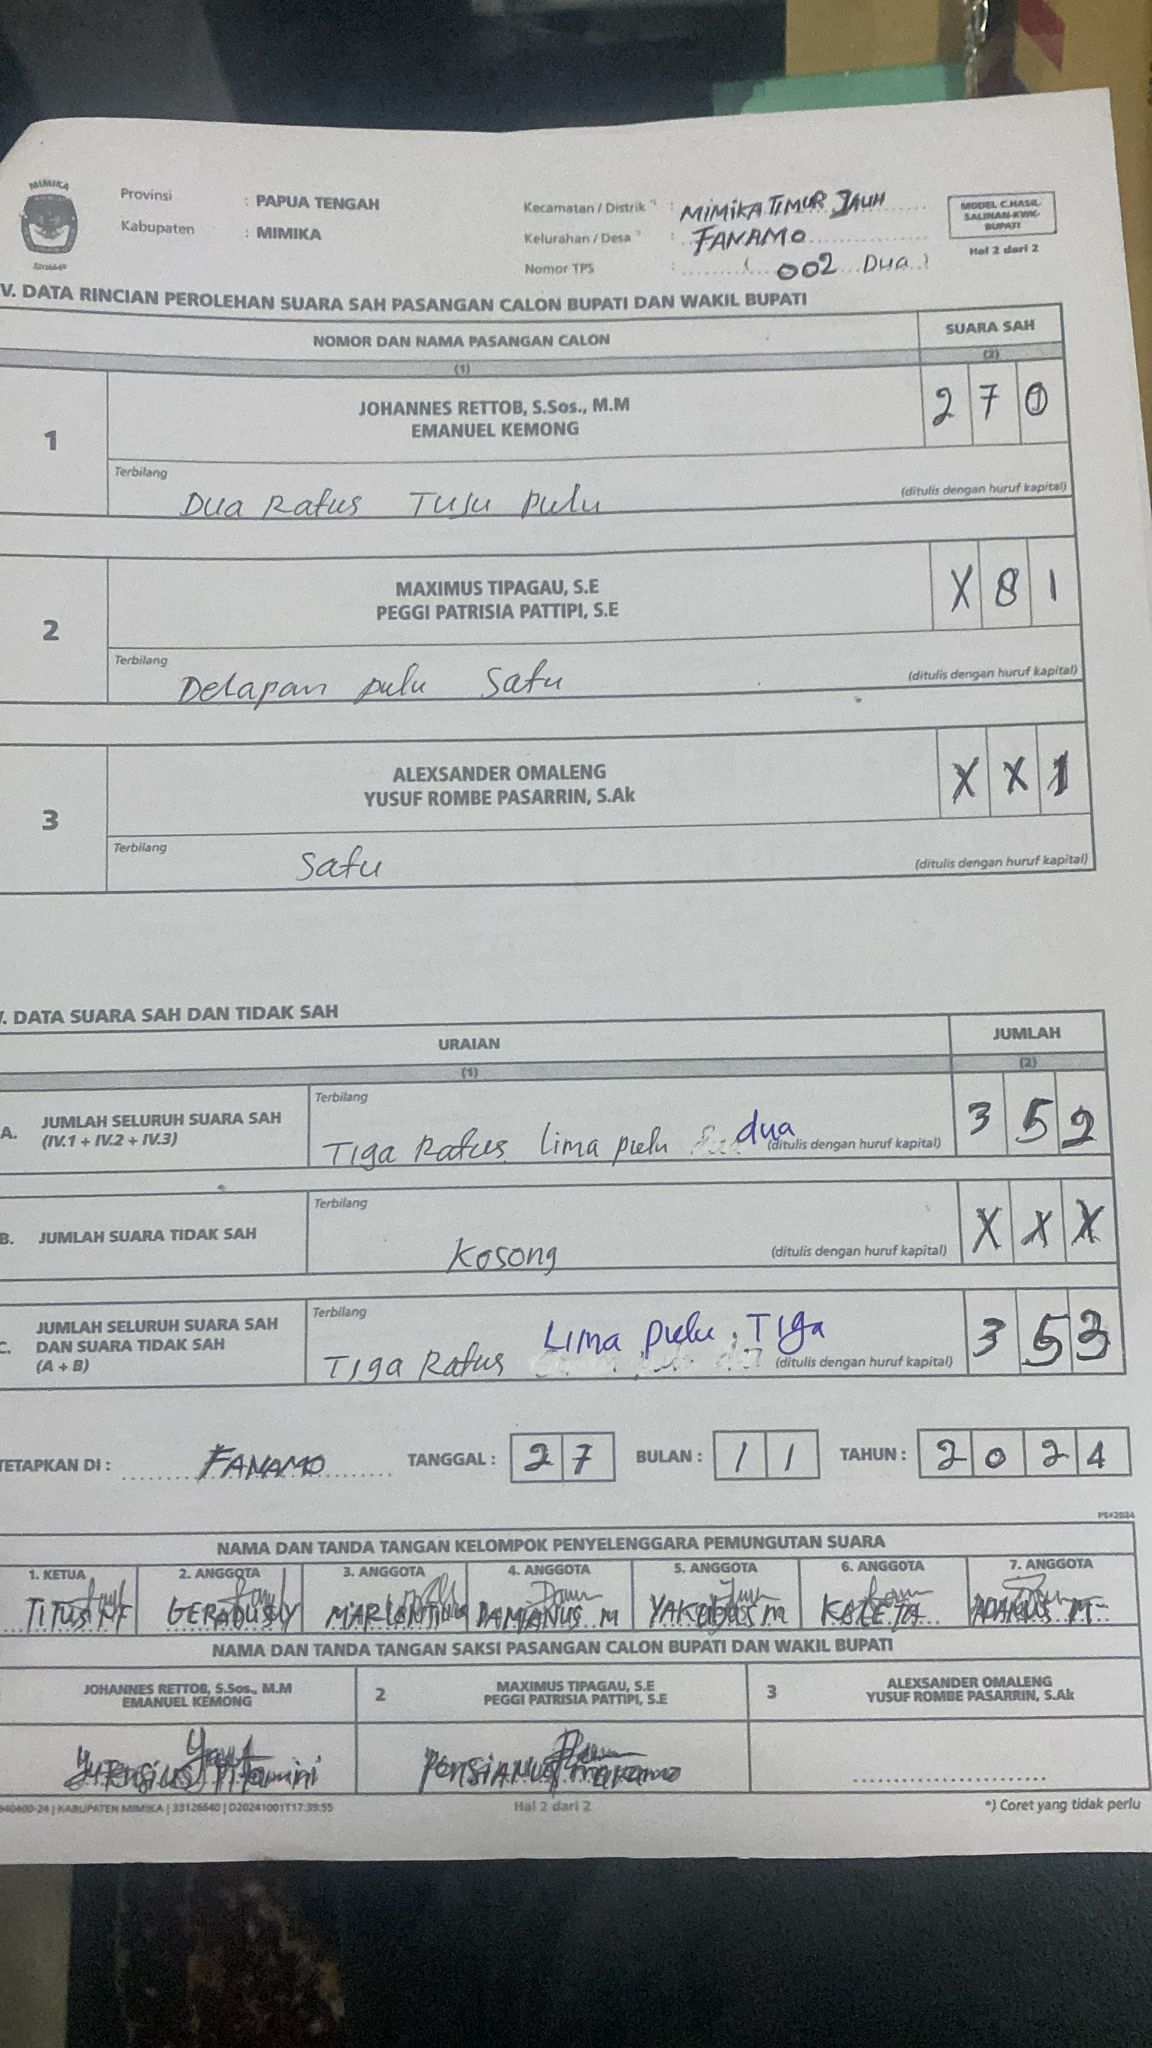 MIMIKA
Provinsi : PAPUA TENGAH
Kabupaten : MIMIKA
Kecamatan / Distrik *) : MIMIKA TIMUR JAUH
Kelurahan / Desa *) : FANAMO
Nomor TPS : ( 002 Dua )
MODEL C.HASIL-
SALINAN-KWK-
BUPATI
Hal 2 dari 2
V. DATA RINCIAN PEROLEHAN SUARA SAH PASANGAN CALON BUPATI DAN WAKIL BUPATI
NOMOR DAN NAMA PASANGAN CALON SUARA SAH
(1) (2)
1 JOHANNES RETTOB, S.Sos., M.M 2 7 0
EMANUEL KEMONG
Terbilang
Dua Ratus Tuju pulu (ditulis dengan huruf kapital)
2 MAXIMUS TIPAGAU, S.E X 8 1
PEGGI PATRISIA PATTIPI, S.E
Terbilang
Delapan pulu Satu (ditulis dengan huruf kapital)
3 ALEXSANDER OMALENG X X 1
YUSUF ROMBE PASARRIN, S.Ak
Terbilang
Satu (ditulis dengan huruf kapital)
. DATA SUARA SAH DAN TIDAK SAH
URAIAN JUMLAH
(1) (2)
A. JUMLAH SELURUH SUARA SAH
(IV.1 + IV.2 + IV.3)
Terbilang
Tiga Ratus Lima pulu dua (ditulis dengan huruf kapital) 3 5 2
B. JUMLAH SUARA TIDAK SAH
Terbilang
Kosong (ditulis dengan huruf kapital) X X X
C. JUMLAH SELURUH SUARA SAH
DAN SUARA TIDAK SAH
(A + B)
Terbilang
Tiga Ratus Lima pulu Tiga (ditulis dengan huruf kapital) 3 5 3
TETAPKAN DI : FANAMO TANGGAL : 2 7 BULAN : 1 1 TAHUN : 2 0 2 4
NAMA DAN TANDA TANGAN KELOMPOK PENYELENGGARA PEMUNGUTAN SUARA
1. KETUA 2. ANGGOTA 3. ANGGOTA 4. ANGGOTA 5. ANGGOTA 6. ANGGOTA 7. ANGGOTA
TITUS DAMIANUS M
NAMA DAN TANDA TANGAN SAKSI PASANGAN CALON BUPATI DAN WAKIL BUPATI
JOHANNES RETTOB, S.Sos., M.M
EMANUEL KEMONG
2 MAXIMUS TIPAGAU, S.E
PEGGI PATRISIA PATTIPI, S.E
3 ALEXSANDER OMALENG
YUSUF ROMBE PASARRIN, S.Ak
940400-24 | KABUPATEN MIMIKA | 33126640 | D20241001T17.39:55 Hal 2 dari 2 *) Coret yang tidak perlu